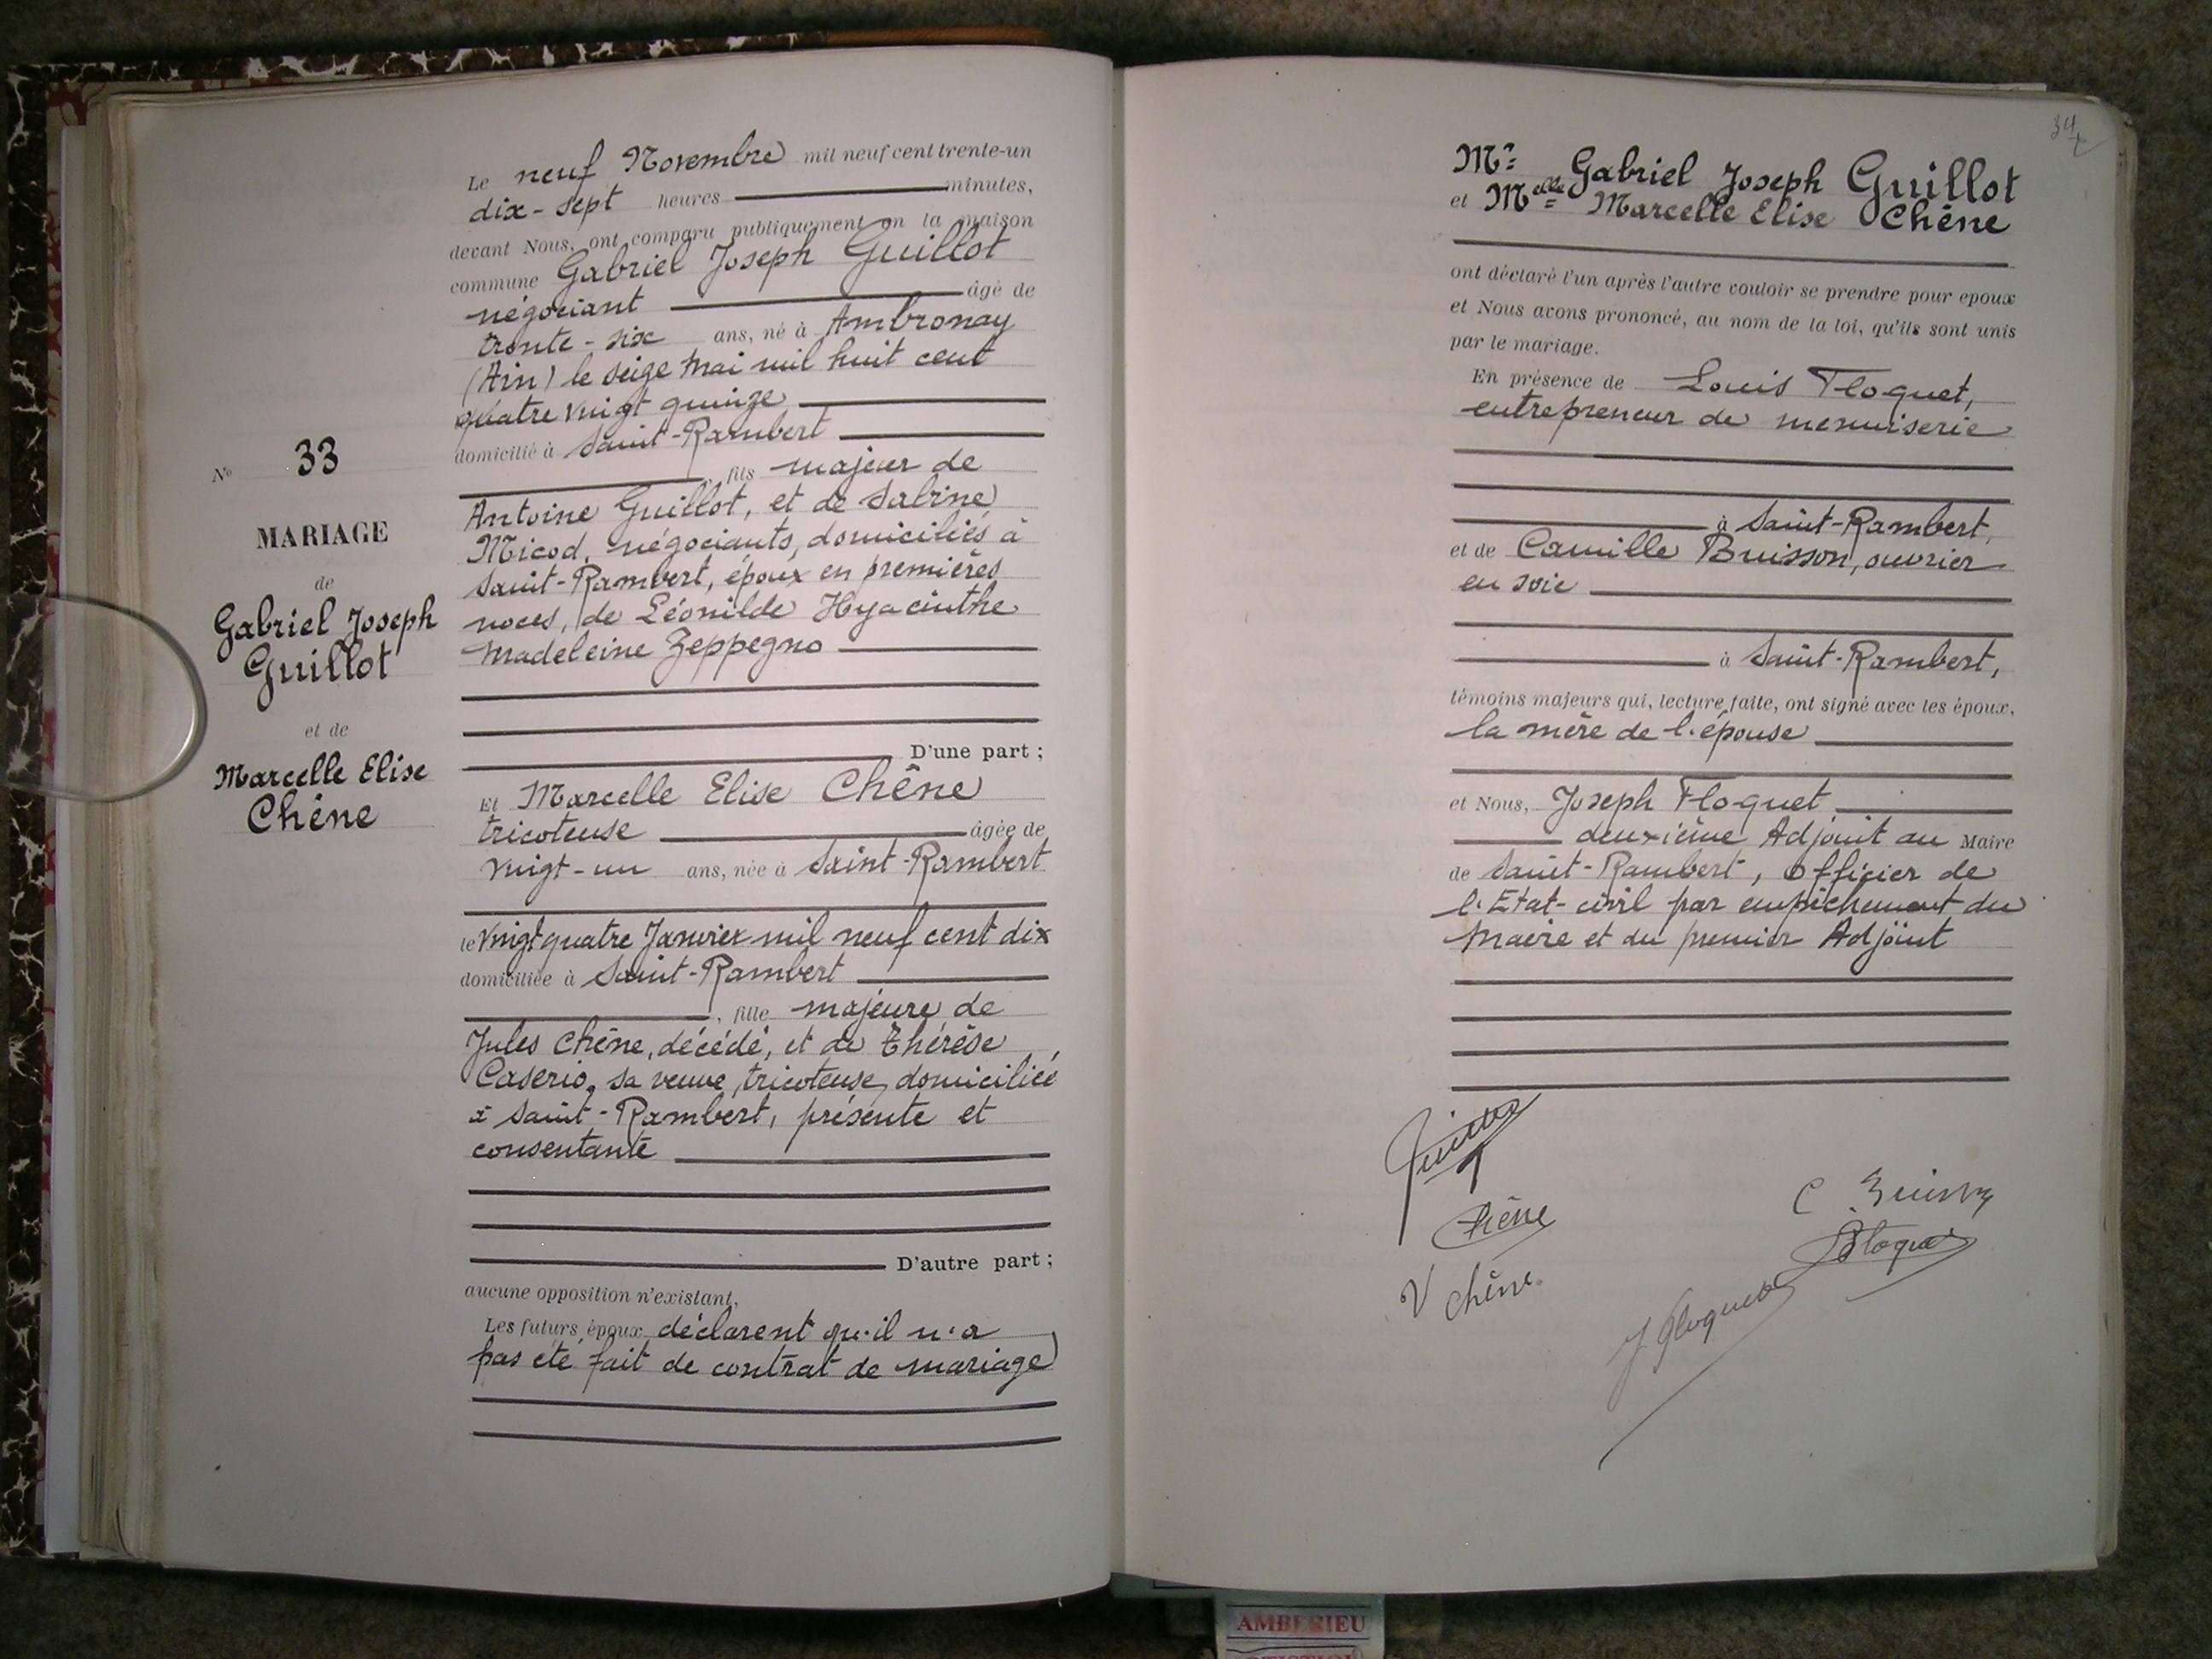 Le neuf Novembre mil neuf cent trente-un
dix-sept heures minutes,
devant Nous, ont comparu publiquement en la maison
commune Gabriel Joseph Guillot
négociant âgé de
trente-six ans, né à Ambronay
(Ain) le seize Mai mil huit cent
quatre vingt quinze
domicilié à Saint-Rambert
, fils majeur de
Antoine Guillot, et de Sabine
Micod, négociants, domiciliés à
Saint-Rambert, époux en premières
noces, de Léonilde Hyacinthe
Madeleine Zeppegno
D'une part ;
Et Marcelle Elise Chêne
tricoteuse âgée de
vingt-un ans, née à Saint-Rambert
le vingt quatre Janvier mil neuf cent dix
domiciliée à Saint-Rambert
, fille majeure de
Jules Chêne, décédé, et de Thérèse
Caserio, sa veuve, tricoteuse, domiciliée
à Saint-Rambert, présente et
consentante
D'autre part ;
aucune opposition n'existant,
Les futurs époux déclarent qu'il n'a
pas été fait de contrat de mariage
No 33
MARIAGE
de
Gabriel Joseph
Guillot
et de
Marcelle Elise
Chêne
34
Mr Gabriel Joseph Guillot
et Melle Marcelle Elise Chêne
ont déclaré l'un après l'autre vouloir se prendre pour epoux
et Nous avons prononcé, au nom de la loi, qu'ils sont unis
par le mariage.
En présence de Louis Floquet,
entrepreneur de menuiserie
à Saint-Rambert,
et de Camille Buisson, ouvrier
en soie
à Saint-Rambert,
témoins majeurs qui, lecture faite, ont signé avec les époux,
la mère de l'épouse
et Nous, Joseph Floquet
deuxième Adjoint au Maire
de Saint-Rambert, Officier de
l'Etat-civil par empêchement du
Maire et du premier Adjoint
Guillot
Chêne
V Chêne
C Buisson
Floquet
J Floquet
AMBERIEU